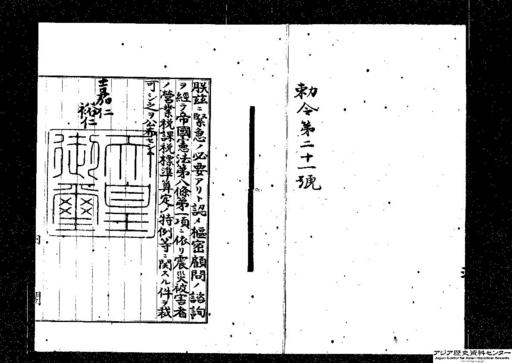 勅令第二十一號
朕茲ニ緊急ノ必要アリト認メ樞密顧問ノ諮詢
ヲ經テ帝國憲法第八條第一項ニ依リ震災被害者
ノ營業税課税標準算定ノ特例等ニ關スル件ヲ裁
可シ之ヲ公布セシム
嘉仁
裕仁
天皇
御璽
内閣
アジア歴史資料センター
Japan Center for Asian Historical Records